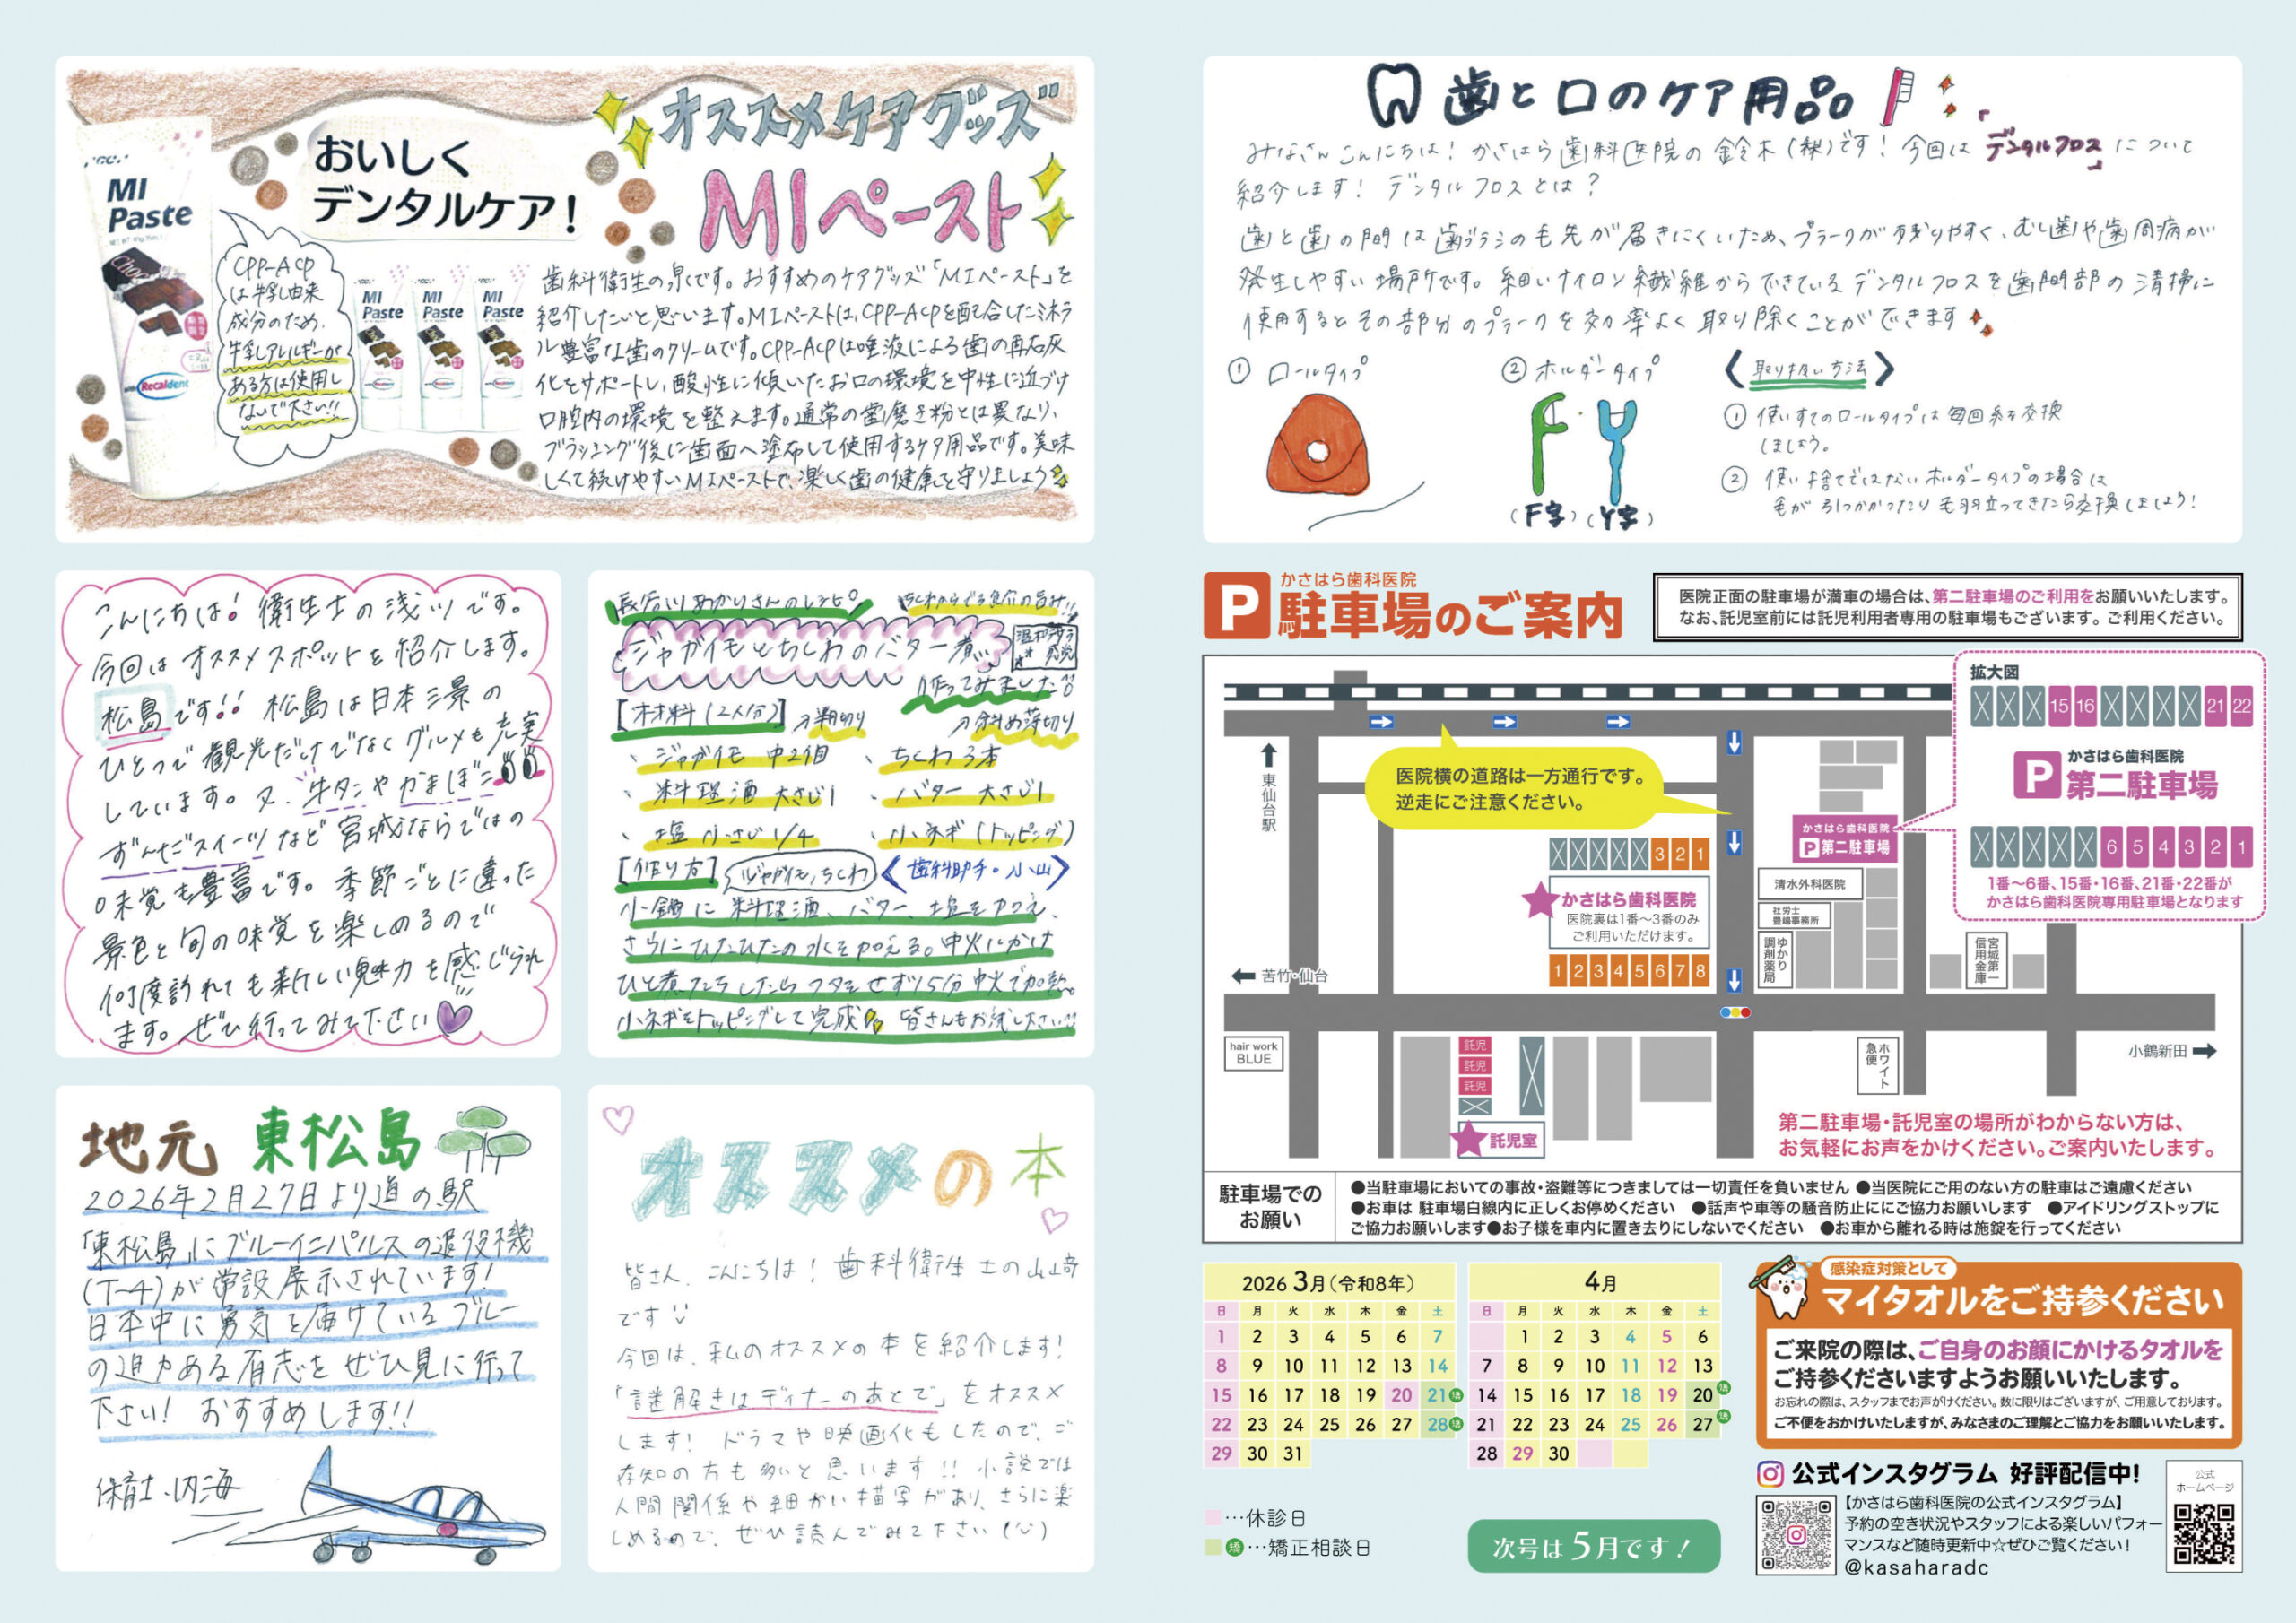 オススメケアグッズ
MIペースト
おいしく
デンタルケア!
MI
Paste
Recaldent
CPP-ACP
は牛乳由来
成分のため、
牛乳アレルギーが
ある方は使用し
ないで下さい!!
MI
Paste
MI
Paste
MI
Paste
歯科衛生の泉です。おすすめのケアグッズ「MIペースト」を
紹介したいと思います。MIペーストは、CPP-ACPを配合したミネラ
ル豊富な歯のクリームです。CPP-ACPは唾液による歯の再石灰
化をサポートし、酸性に傾いたお口の環境を中性に近づけ
口腔内の環境を整えます。通常の歯磨き粉とは異なり、
ブラッシング後に歯面へ塗布して使用するケア用品です。美味
しくて続けやすいMIペーストで、楽しく歯の健康を守りましょう
こんにちは!衛生士の浅川です。
今回はオススメスポットを紹介します。
松島です!!松島は日本三景の
ひとつで観光だけでなくグルメも充実
しています。又、牛タンやかまぼこ
ずんだスイーツなど宮城ならではの
味覚も豊富です。季節ごとに違った
景色と旬の味覚を楽しめるので
何度訪れても新しい魅力を感じられ
ます。ぜひ行ってみて下さい
長谷川あかりさんのレシピ
ジャガイモとちくわのバター煮
作ってみました
[材料(2人分)] 半月切り 斜め薄切り
、ジャガイモ 中2個 、ちくわ 3本
、料理酒 大さじ1 、バター 大さじ1
、塩 小さじ1/4 、小ネギ(トッピング)
[作り方] ジャガイモ、ちくわ 〈歯科助手・小山〉
小鍋に料理酒、バター、塩を加え、
さらにひたひたの水を加える。中火にかけ
ひと煮たちしたらフタをせず15分中火で加熱。
小ネギをトッピングして完成 皆さんもお試し下さい!!
地元 東松島
2026年2月27日より道の駅
「東松島」にブルーインパルスの退役機
(T-4)が常設展示されています!
日本中に勇気を届けているブルー
の迫力ある有志をぜひ見に行って
下さい! おすすめします!!
保育士・内海
オススメの本
皆さん、こんにちは!歯科衛生士の山崎
です
今回は、私のオススメの本を紹介します!
「謎解きはディナーのあとで」をオススメ
します! ドラマや映画化もしたので、ご
存知の方も多いと思います!! 小説では
人間関係や細かい描写があり、さらに楽
しめるので、ぜひ読んでみて下さい
歯と口のケア用品
みなさんこんにちは!かさはら歯科医院の鈴木(梨)です!今回は「デンタルフロス」について
紹介します! デンタルフロスとは?
歯と歯の間は歯ブラシの毛先が届きにくいため、プラークが残りやすく、むし歯や歯周病が
発生しやすい場所です。細いナイロン繊維からできているデンタルフロスを歯間部の清掃に
使用するとその部分のプラークを効率よく取り除くことができます
① ロールタイプ
② ホルダータイプ
(F字)(Y字)
〈取り扱い方法〉
① 使いすてのロールタイプは毎回糸を交換
しましょう。
② 使い捨てではないホルダータイプの場合は
毛が引っかかったり毛羽立ってきたら交換しましょう!
P かさはら歯科医院
駐車場のご案内
医院正面の駐車場が満車の場合は、第二駐車場のご利用をお願いいたします。
なお、託児室前には託児利用者専用の駐車場もございます。ご利用ください。
東仙台駅
医院横の道路は一方通行です。
逆走にご注意ください。
拡大図
15 16 21 22
P かさはら歯科医院
第二駐車場
6 5 4 3 2 1
1番〜6番、15番・16番、21番・22番が
かさはら歯科医院専用駐車場となります
かさはら歯科医院
P 第二駐車場
3 2 1
かさはら歯科医院
医院裏は1番〜3番のみ
ご利用いただけます。
1 2 3 4 5 6 7 8
清水外科医院
社労士
豊嶋事務所
ゆかり
調剤薬局
宮城第一
信用金庫
苦竹・仙台
hair work
BLUE
託児
託児
託児
託児室
ホワイト
急便
小鶴新田
第二駐車場・託児室の場所がわからない方は、
お気軽にお声をかけください。ご案内いたします。
駐車場での
お願い
●当駐車場においての事故・盗難等につきましては一切責任を負いません ●当医院にご用のない方の駐車はご遠慮ください
●お車は 駐車場白線内に正しくお停めください ●話声や車等の騒音防止ににご協力お願いします ●アイドリングストップに
ご協力お願いします●お子様を車内に置き去りにしないでください ●お車から離れる時は施錠を行ってください
2026 3月(令和8年)
日 月 火 水 木 金 土
1 2 3 4 5 6 7
8 9 10 11 12 13 14
15 16 17 18 19 20 21 矯
22 23 24 25 26 27 28 矯
29 30 31
4月
日 月 火 水 木 金 土
1 2 3 4 5 6
7 8 9 10 11 12 13
14 15 16 17 18 19 20 矯
21 22 23 24 25 26 27 矯
28 29 30
…休診日
矯…矯正相談日
次号は5月です!
感染症対策として
マイタオルをご持参ください
ご来院の際は、ご自身のお顔にかけるタオルを
ご持参くださいますようお願いいたします。
お忘れの際は、スタッフまでお声がけください。数に限りはございますが、ご用意しております。
ご不便をおかけいたしますが、みなさまのご理解とご協力をお願いいたします。
公式インスタグラム 好評配信中!
【かさはら歯科医院の公式インスタグラム】
予約の空き状況やスタッフによる楽しいパフォー
マンスなど随時更新中☆ぜひご覧ください!
@kasaharadc
公式
ホームページ